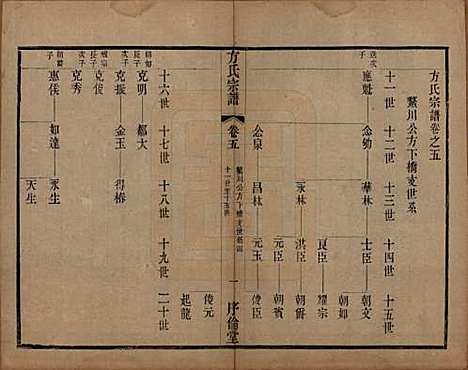 方氏宗譜卷之五
鰲川公方下橋支世系
十一世 十二世 十三世 十四世 十五世
次子 應魁 念勤 華林 士臣 朝文
朝如
良臣 耀宗
永林 洪臣 朝爵
元臣 朝賓
念泉 昌林 元玉 俊臣
方氏宗譜
卷五
鰲川公方下橋支世系
一 序倫堂
十六世 十七世 十八世 十九世 二十世
朝如次子 克明 都大 俊元
起龍
克振 金玉 得椿
耀宗長子 克典
次子 克秀
朝爵子 惠俊 如達 永生
天生